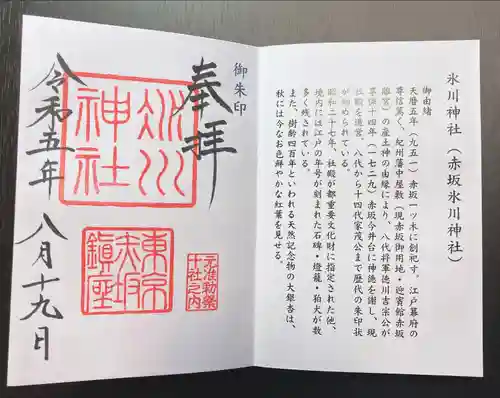 氷川神社（赤坂氷川神社）
御由緒
天暦五年（九五一）赤坂一ツ木に創祀す。江戸幕府の
尊信篤く、紀州藩中屋敷（現赤坂御用地・迎賓館赤坂
離宮）の産土神の由縁により、八代将軍徳川吉宗公が
享保十四年（一七二九）赤坂今井台に神徳を謝し、現
社殿を造営。八代から十四代家茂公まで歴代の朱印状
が納められている。
昭和二十七年、社殿が都重要文化財に指定された他、
境内には江戸の年号が刻まれた石碑・燈籠・狛犬が数
多く残されている。
また、樹齢四百年といわれる天然記念物の大銀杏は、
秋には今なお色鮮やかな紅葉を見せる。
御朱印
奉拝
氷川
神社
東京
赤坂
鎮座
元准勅祭
十社之内
令和五年
八月十九日